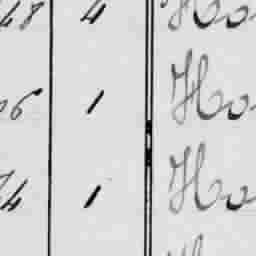 48 4 Ho
06 1 Ho
74 1 Ho